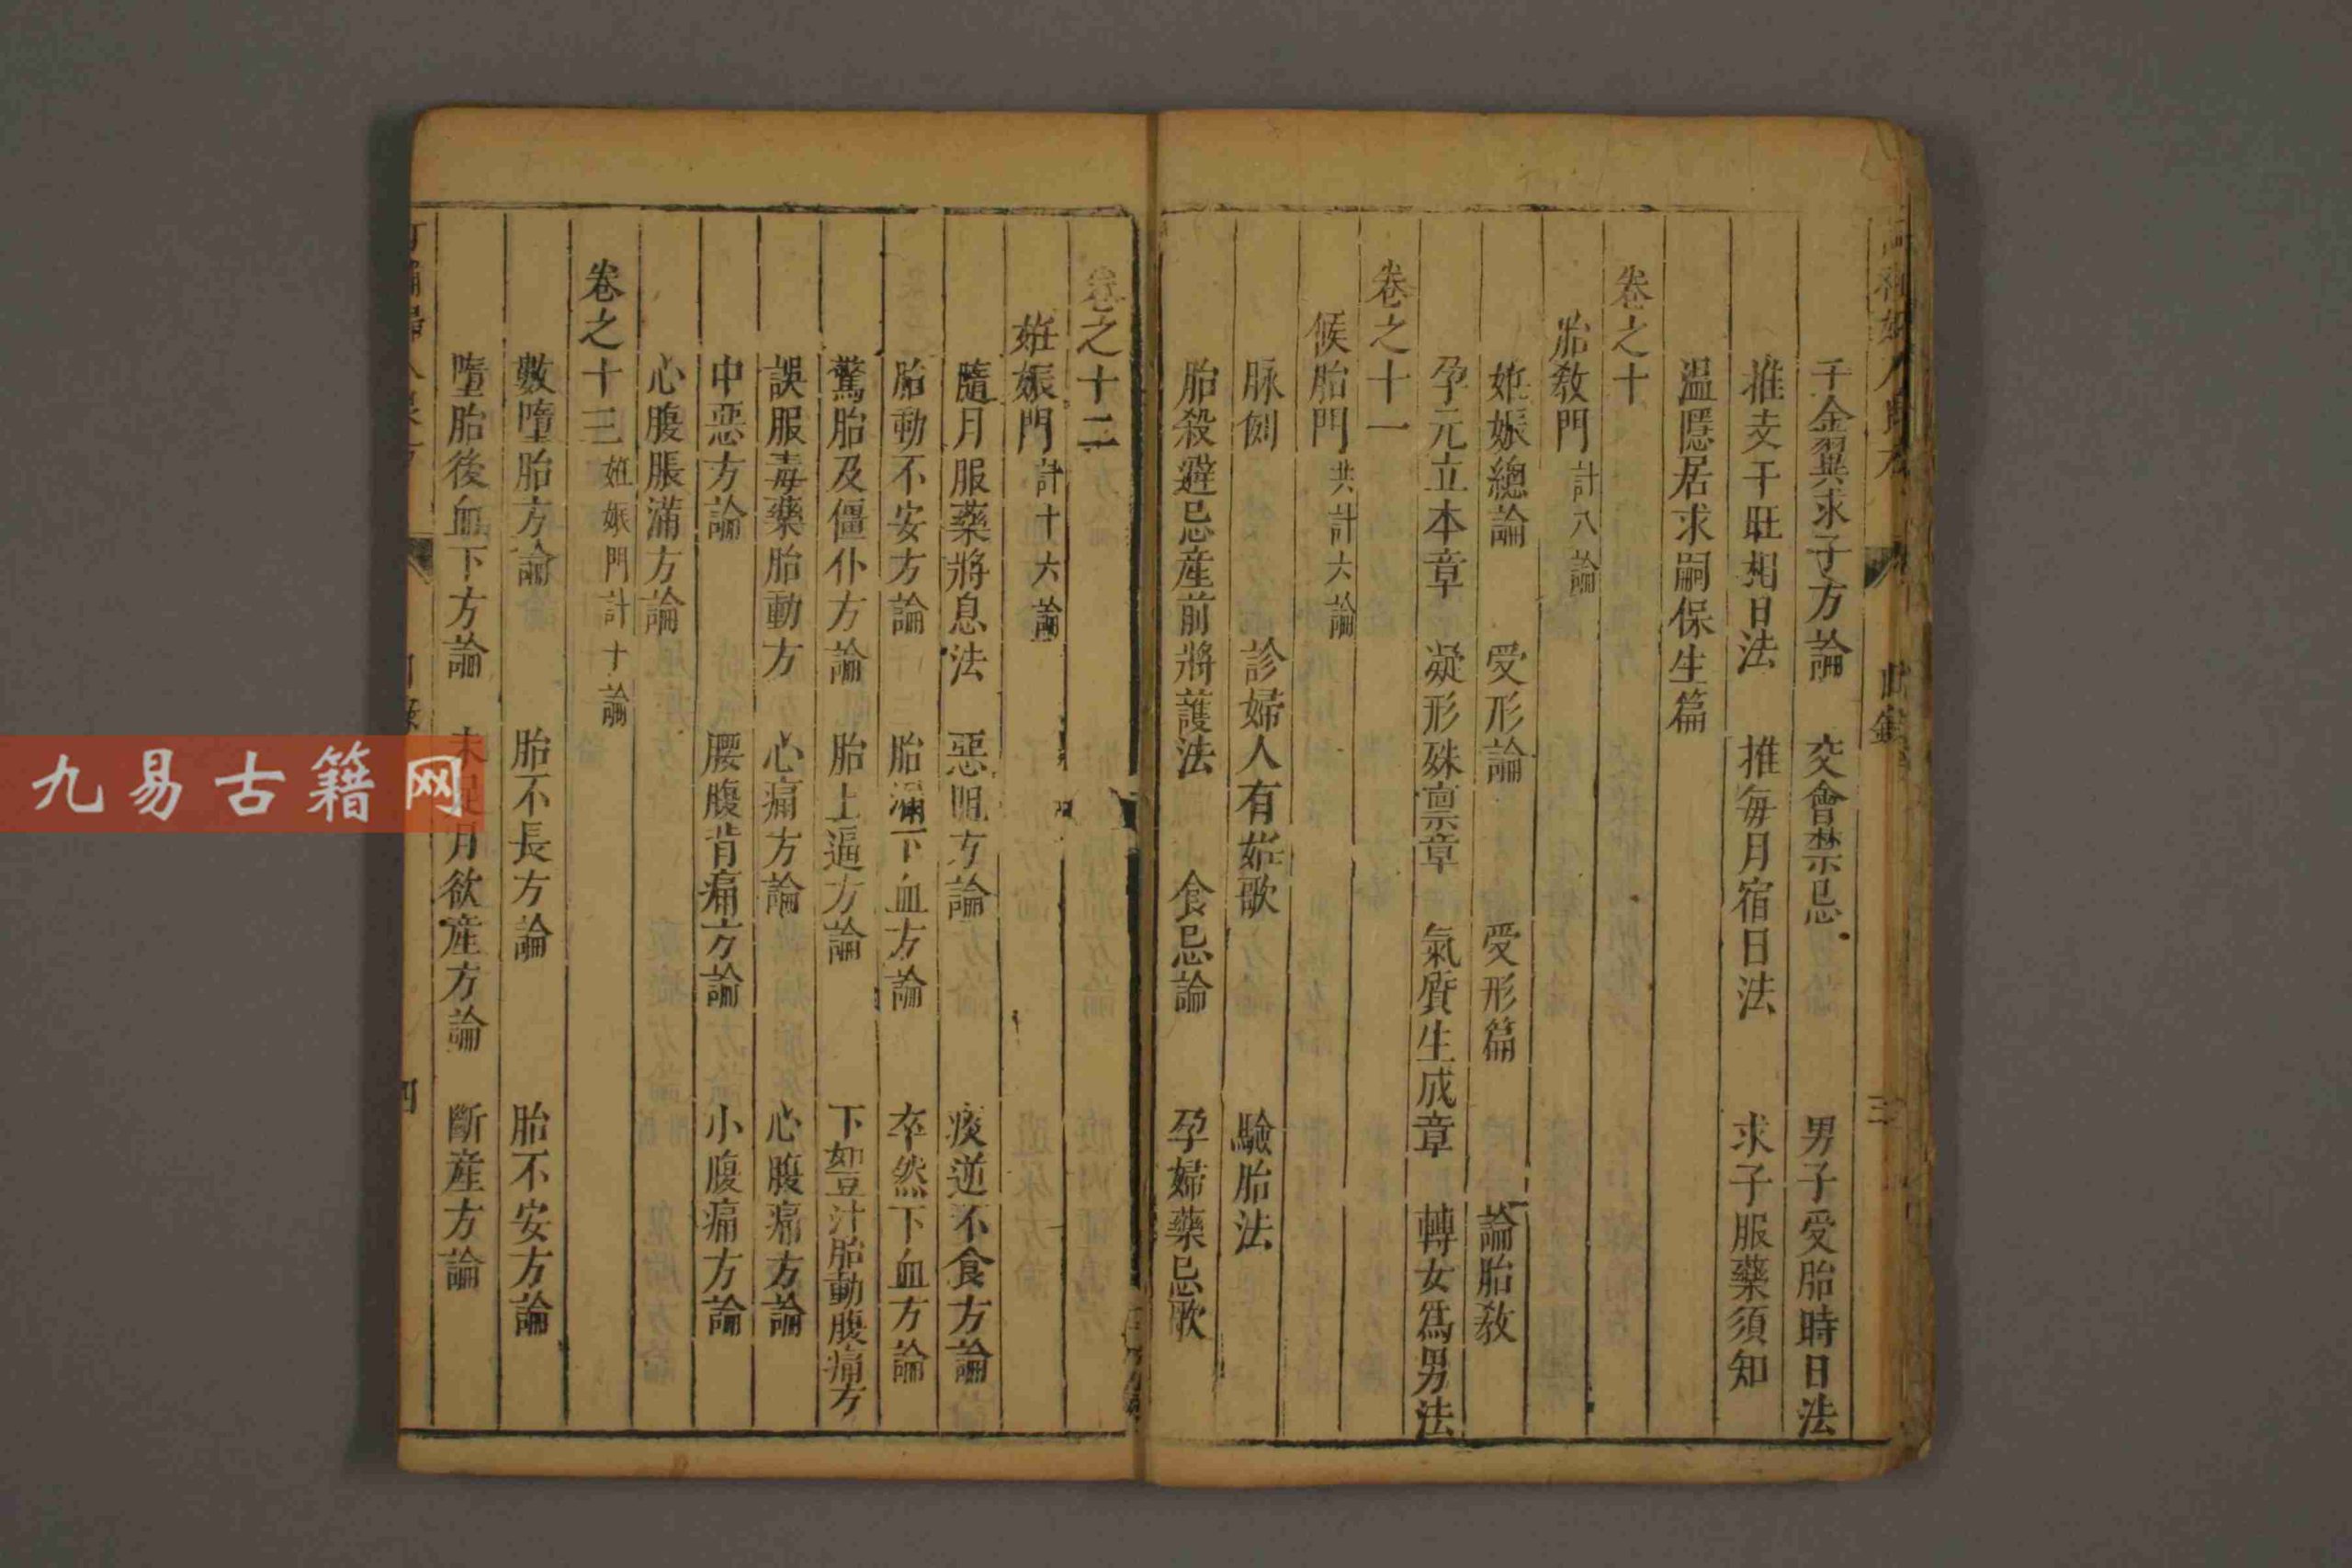 千金翼求子方論　交會禁忌　男子受胎時日法
推支干旺相日法　推每月宿日法　求子服藥須知
温隱居求嗣保生篇
卷之十
胎教門 計八論
姙娠總論　受形論　受形篇　論胎教
孕元立本章　凝形殊禀章　氣質生成章　轉女爲男法
卷之十一
候胎門 共計六論
脉例　診婦人有姙歌　驗胎法
胎殺避忌產前將護法　食忌論　孕婦藥忌歌
卷之十二
姙娠門 計十六論
隨月服藥將息法　惡阻方論　痰逆不食方論
胎動不安方論　胎漏下血方論　卒然下血方論
驚胎及僵仆方論　胎上逼方論　下如豆汁胎動腹痛方
誤服毒藥胎動方　心痛方論　心腹痛方論
中惡方論　腰腹背痛方論　小腹痛方論
心腹脹滿方論
卷之十三 姙娠門計十論
數墮胎方論　胎不長方論　胎不安方論
墮胎後血下方論　未足月欲產方論　斷產方論
四
九易古籍网